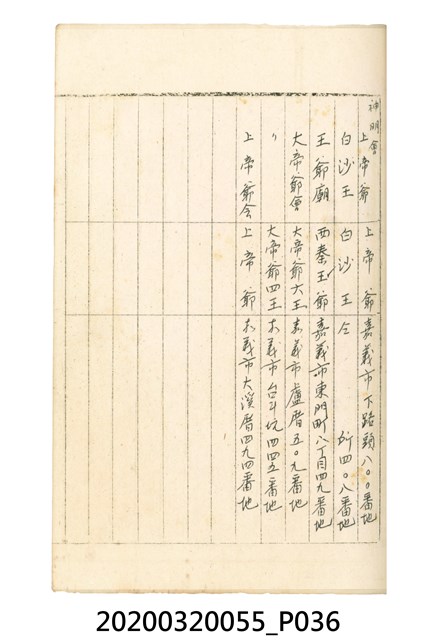 神明會
上帝爺 上帝爺 嘉義市下路頭八〇〇番地
白沙王 白沙王 仝 所四〇八番地
王爺廟 西秦王爺 嘉義市東門町八丁目四九番地
大帝爺會 大帝爺六王 嘉義市盧厝五〇九番地
〃 大帝爺四王 嘉義市台斗坑四四五番地
上帝爺会 上帝爺 嘉義市大溪厝四九四番地
20200320055_P036